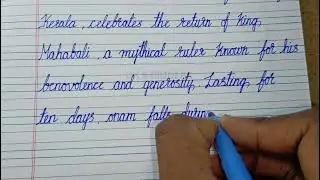 Kerala, celebrates the return of King,
Mahabali, a mythical ruler known for his
benovolence and generosity, Lasting, for
ten days, onam falls during